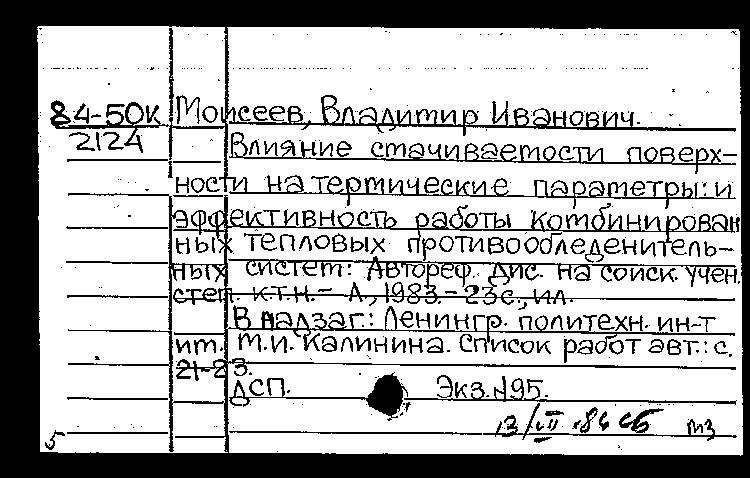 84-50к Моисеев, Владимир Иванович.
2124 Влияние смачиваемости поверх-
ности на термические параметры: и
эффективность работы комбинирован
ных тепловых противообледенитель-
ных систем: Автореф. Дис. на соиск. учен.
степ. к.т.н. - Л., 1983. - 23с., ил.
В надзаг.: Ленингр. политехн. ин-т
им. М.И. Калинина. Список работ авт.: с.
21-23.
ДСП. Экз. №95.
5